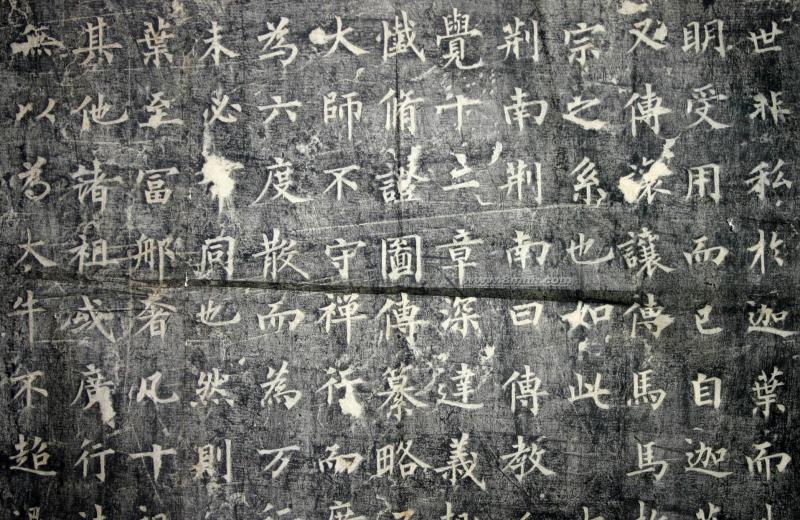 世非私於迦葉而
明受用而已自迦
又傳讓傳馬馬
宗之系也如此
荆南荆南曰傳教
覺十三章深達義
懺脩證圖傳纂略
大師不守禅行而
為六度散而為万
未必同也然則
葉至冨那奢凡十
其他諸祖或廣行
無以為大牛不超